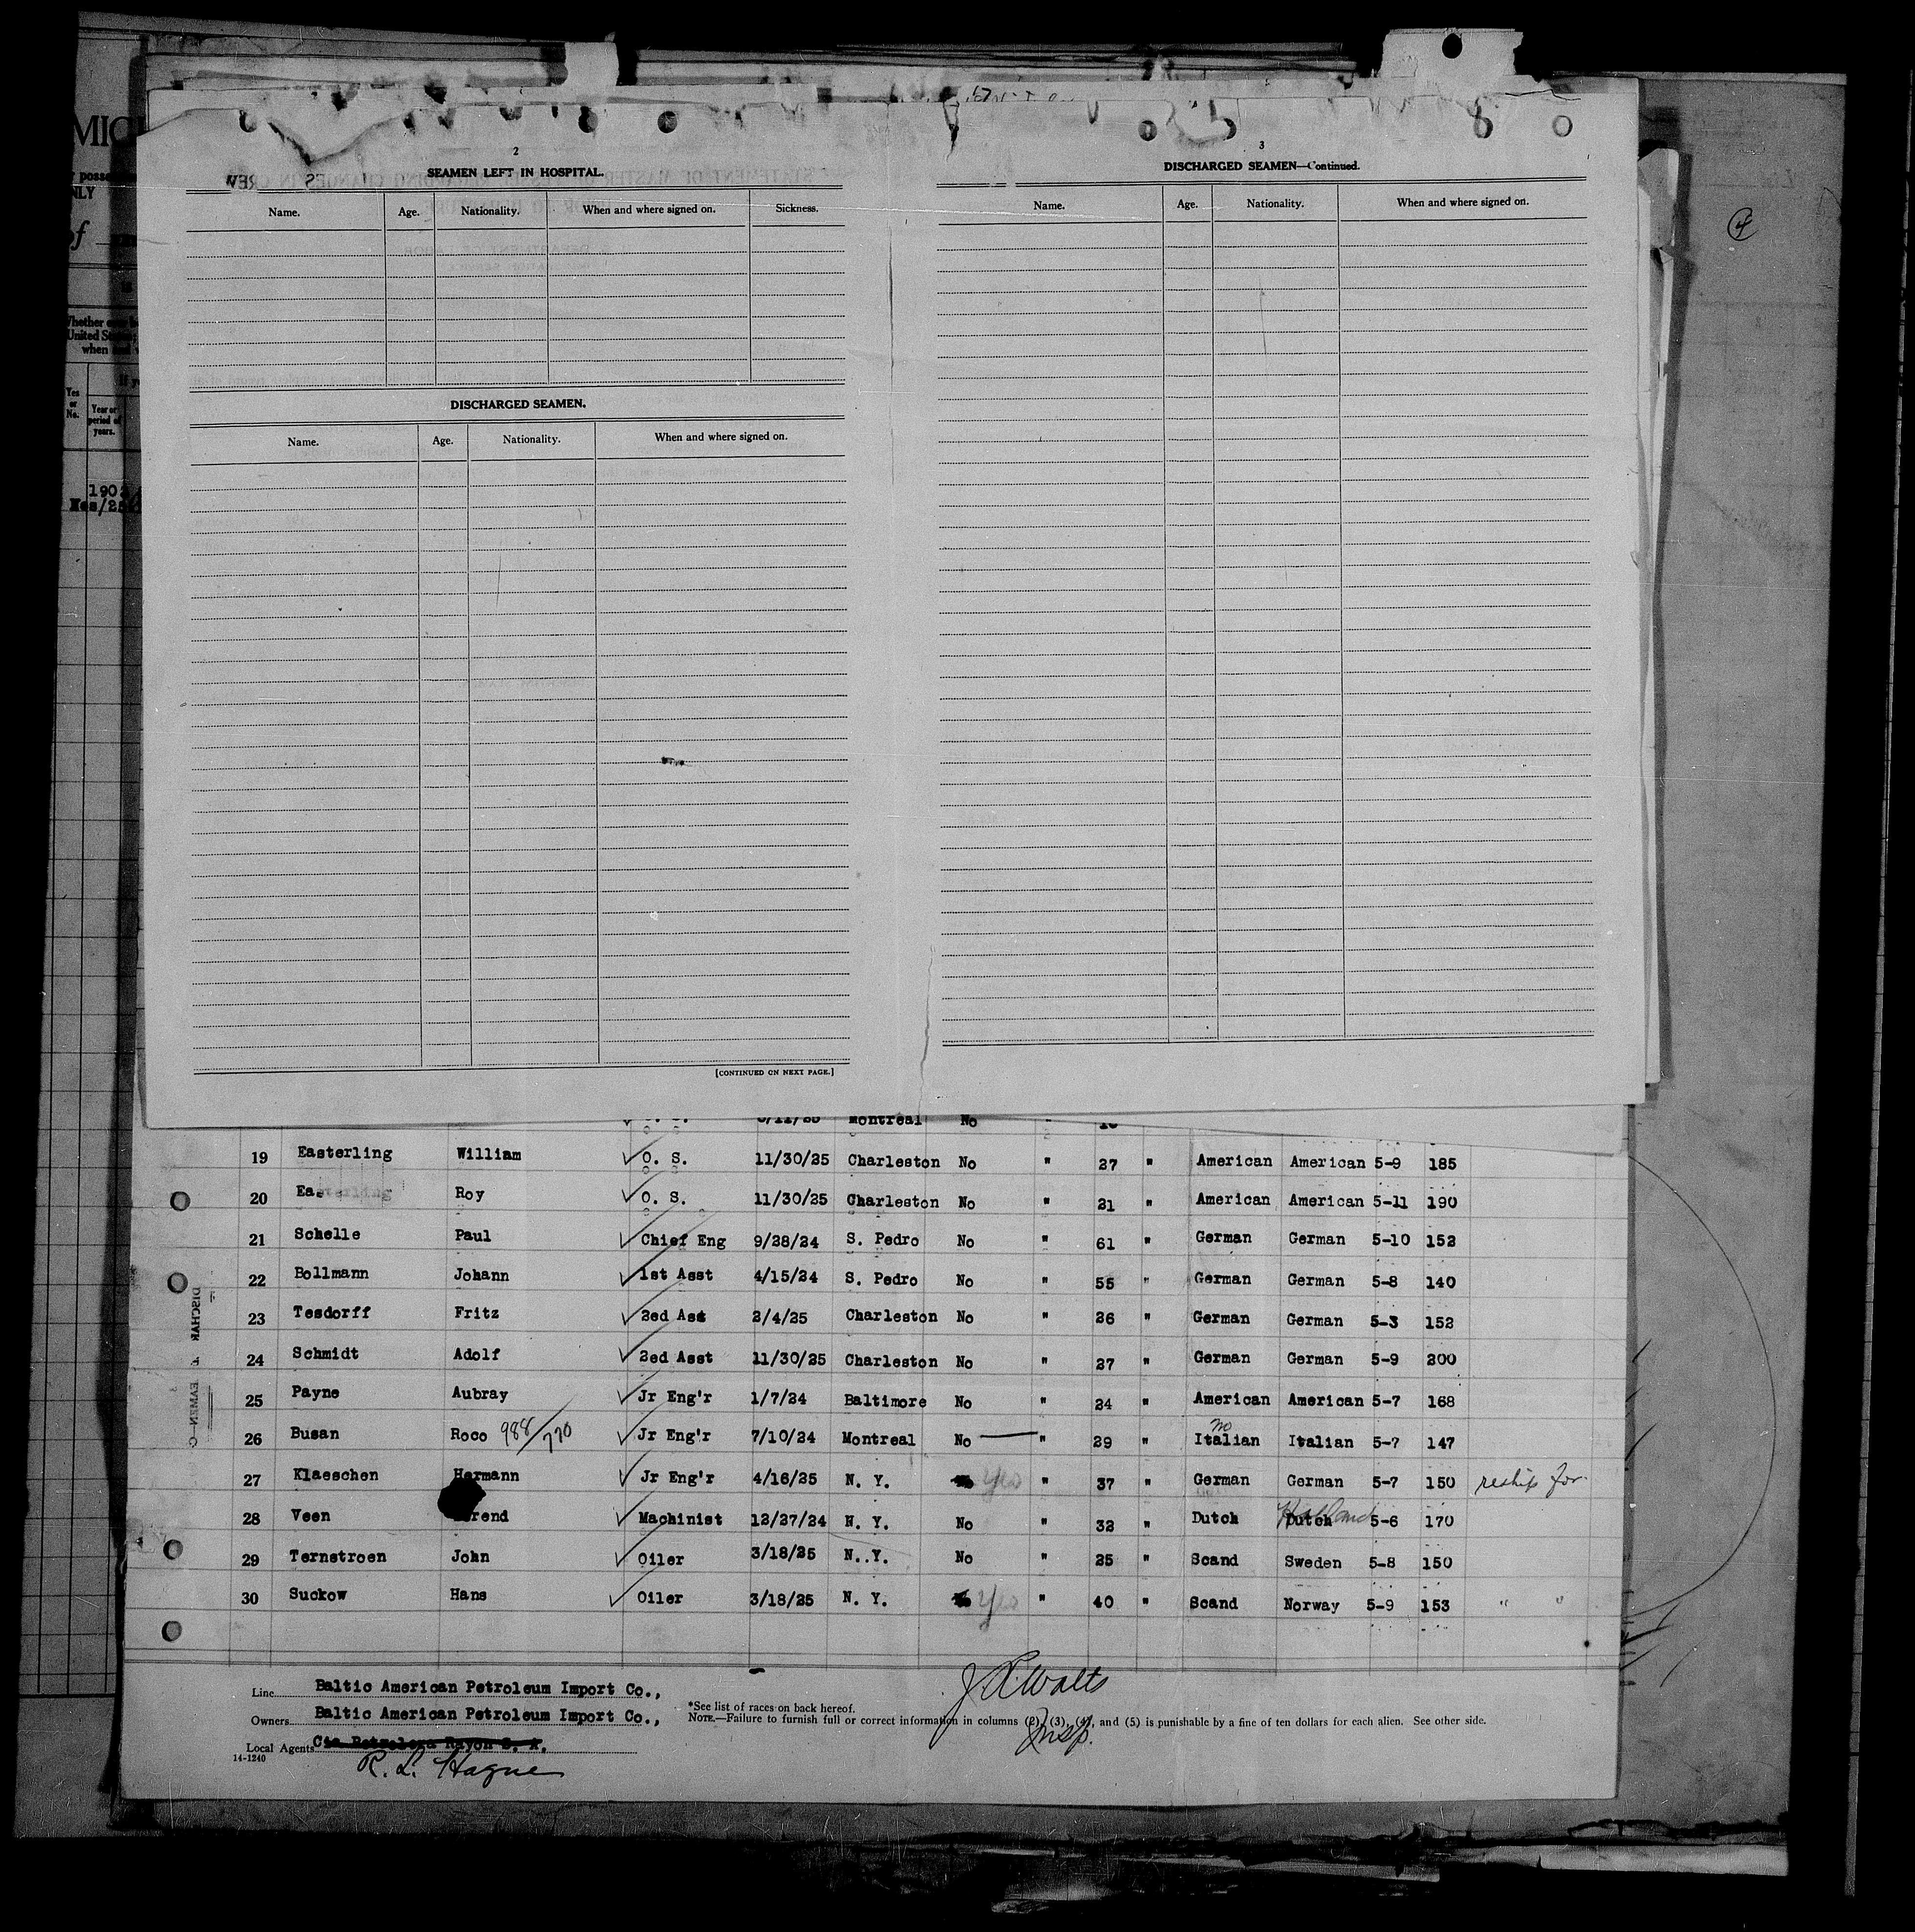 2
SEAMEN LEFT IN HOSPITAL.
Name. Age. Nationality. When and where signed on. Sickness.
DISCHARGED SEAMEN.
Name. Age. Nationality. When and where signed on.
[CONTINUED ON NEXT PAGE.]
3
DISCHARGED SEAMEN—Continued.
Name. Age. Nationality. When and where signed on.
NLY
of
Yes or No.
Year or period of years.
Montreal No
19 Easterling William O. S. 11/30/25 Charleston No " 27 " American American 5-9 185
20 Easterling Roy O. S. 11/30/25 Charleston No " 21 " American American 5-11 190
21 Schelle Paul Chief Eng 9/28/24 S. Pedro No " 61 " German German 5-10 152
22 Bollmann Johann 1st Asst 4/15/24 S. Pedro No " 55 " German German 5-8 140
23 Tesdorff Fritz 2ed Ast 2/4/25 Charleston No " 26 " German German 5-3 152
24 Schmidt Adolf 2ed Asst 11/30/25 Charleston No " 27 " German German 5-9 200
25 Payne Aubray Jr Eng'r 1/7/24 Baltimore No " 24 " American American 5-7 168
26 Busan Roco 988/770 Jr Eng'r 7/10/24 Montreal No " 29 " no Italian Italian 5-7 147
27 Klaeschen Hermann Jr Eng'r 4/16/25 N. Y. Yes " 37 " German German 5-7 150 reship for.
28 Veen Machinist 12/27/24 N. Y. No " 32 " Dutch Dutch Holland 5-6 170
29 Ternstroen John Oiler 3/18/25 N. Y. No " 25 " Scand Sweden 5-8 150
30 Suckow Hans Oiler 3/18/25 N. Y. Yes " 40 " Scand Norway 5-9 153 " "
Line Baltic American Petroleum Import Co.,
Owners Baltic American Petroleum Import Co.,
Local Agents Cia Petrolera Rayon S. A.
R. L. Hague
14-1240
*See list of races on back hereof.
NOTE.—Failure to furnish full or correct information in columns (2), (3), (4), and (5) is punishable by a fine of ten dollars for each alien. See other side.
J. R. Walts
Insp.